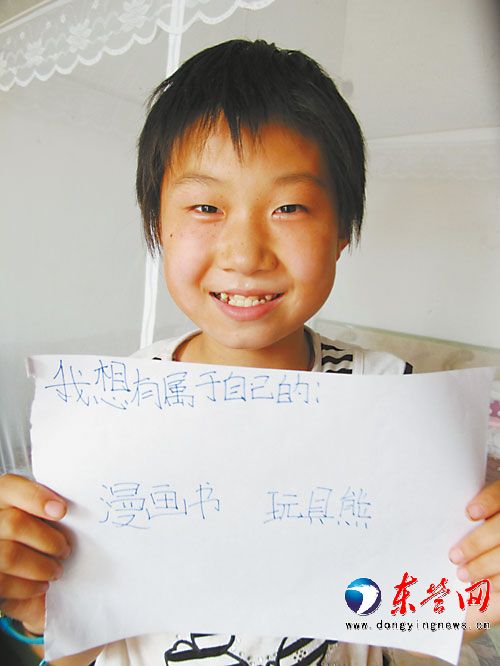 我想有属于自己的:
漫画书 玩具熊
东营网
www.dongyingnews.cn